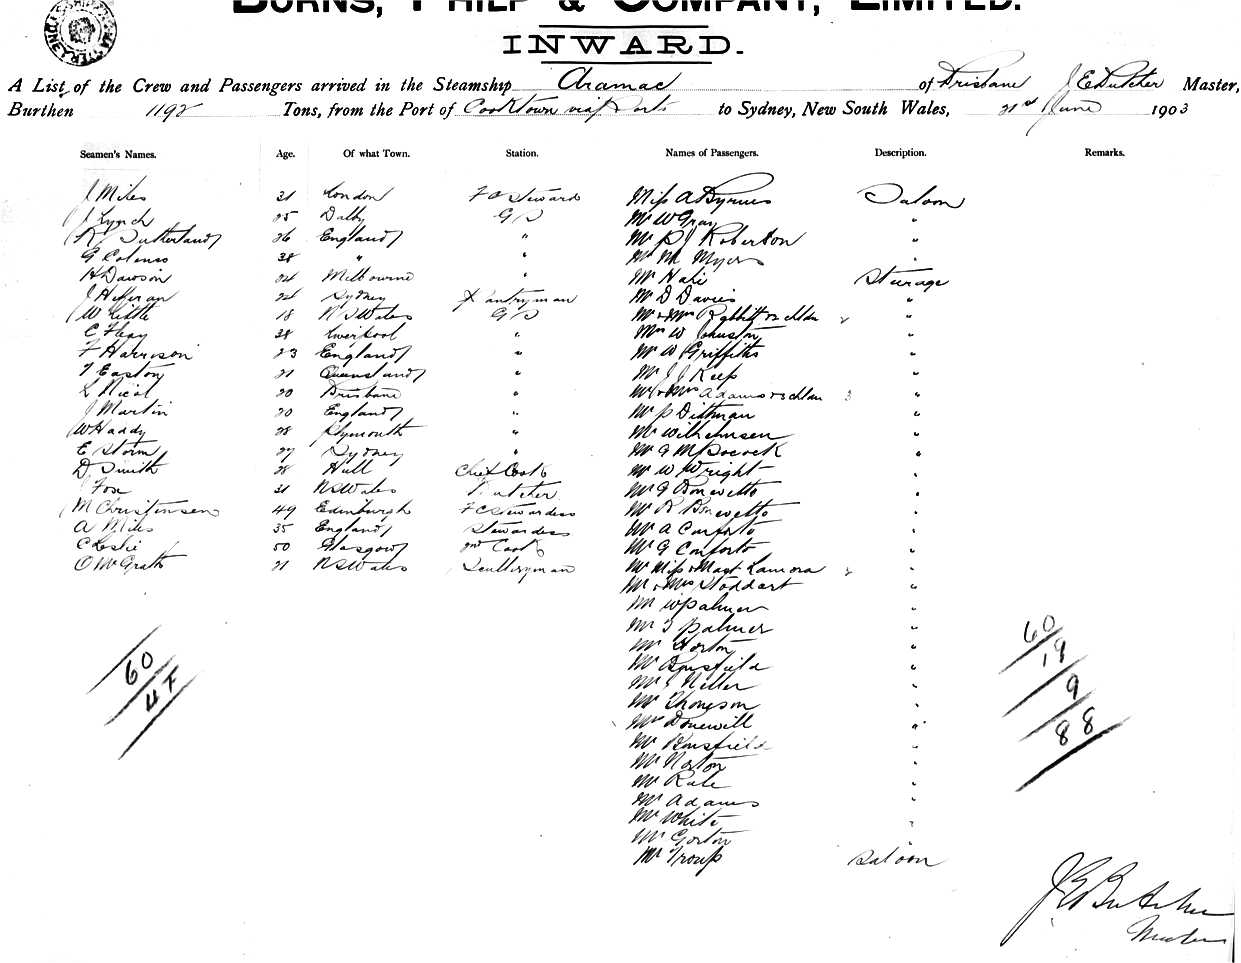 BURNS, PHILP & COMPANY, LIMITED.
INWARD.
A List of the Crew and Passengers arrived in the Steamship Aramac of Brisbane J E Butcher Master,
Burthen 1192 Tons, from the Port of Cooktown via Ports to Sydney, New South Wales, 21st June 1903
Seamen's Names. Age. Of what Town. Station. Names of Passengers. Description. Remarks.
J Miles 31 London F C Steward Miss A Byrnes Saloon
J Lynch 25 Dalby G S Mr W Gray "
R Sutherland 26 England " Mr P J Roberton "
G Colenso 38 " " Mr M Myers "
H Dawson 24 Melbourne " Mr Hali Steerage
J Heffernan 24 Sydney Pantryman Mr D Davies "
W Little 18 N S Wales G S Mr & Mrs Rabbitt & 2 chldn 2 "
C Flay 28 Liverpool " Mrs W Johnston "
F Harrison 23 England " Mr W Griffiths "
T Easton 21 Queensland " Mr J J Keep "
L Nicol 20 Brisbane " Mr & Mrs Adams & 3 chldn 3 "
J Martin 20 England " Mr P Dittman "
W Haddy 28 Plymouth " Mr Wilhelmsen "
E Storm 27 Sydney " Mr G M Pocock "
D Smith 28 Hull Chief Cook Mr W Wright "
J Fox 31 N S Wales Butcher Mr G Bonevetto "
M Christensen 49 Edinburgh F C Stewardess Mr R Bonevetto "
A Miles 35 England Stewardess Mr A Conforto "
C Leslie 50 Glasgow 2nd Cook Mr G Conforto "
O McGrath 21 N S Wales Sculleryman Mr Miss & Mast Lamora 2 "
Mr & Mrs Stoddart "
Mr W Palmer "
Mr T Palmer "
Mr Horton "
Mr Bousfield "
Mr J Miller "
Mr Thompson "
Mrs Donewill "
Mr Bousfield "
Mr Norton "
Mr Rule "
Mr Adams "
Mr White "
Mr Gorton "
Mr Troup Saloon
60
47
60
19
9
88
J E Butcher
Master